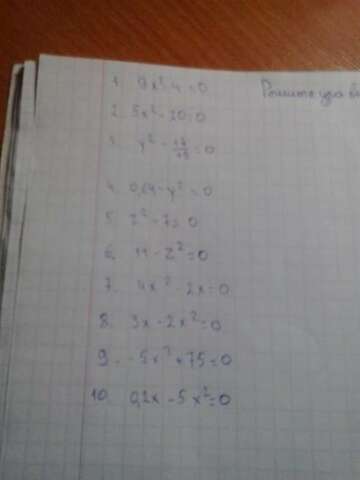 1. 9x²-4=0 Решите ура
2. 5x²-20=0
3. y² - =0
4. 0,64-y²=0
5. z²-7=0
6. 11-z²=0
7. 4x²-2x=0
8. 3x-2x²=0
9. -5x²+75=0
10. 0,2x-5x²=0